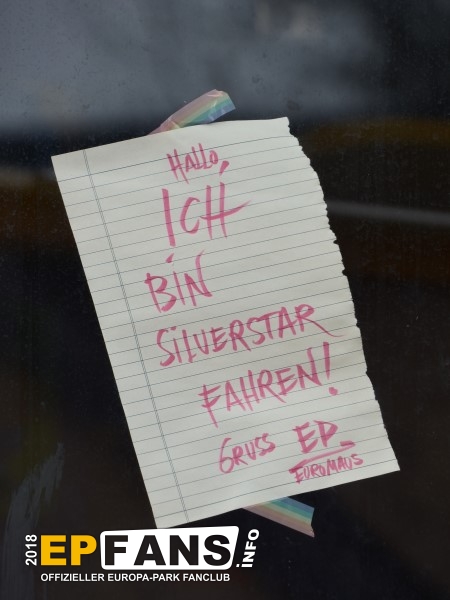 HALLO,
ICH
BIN
SILVERSTAR
FAHREN!
GRUSS ED
EUROMAUS
2018
EPFANS.iNFO
OFFIZIELLER EUROPA-PARK FANCLUB